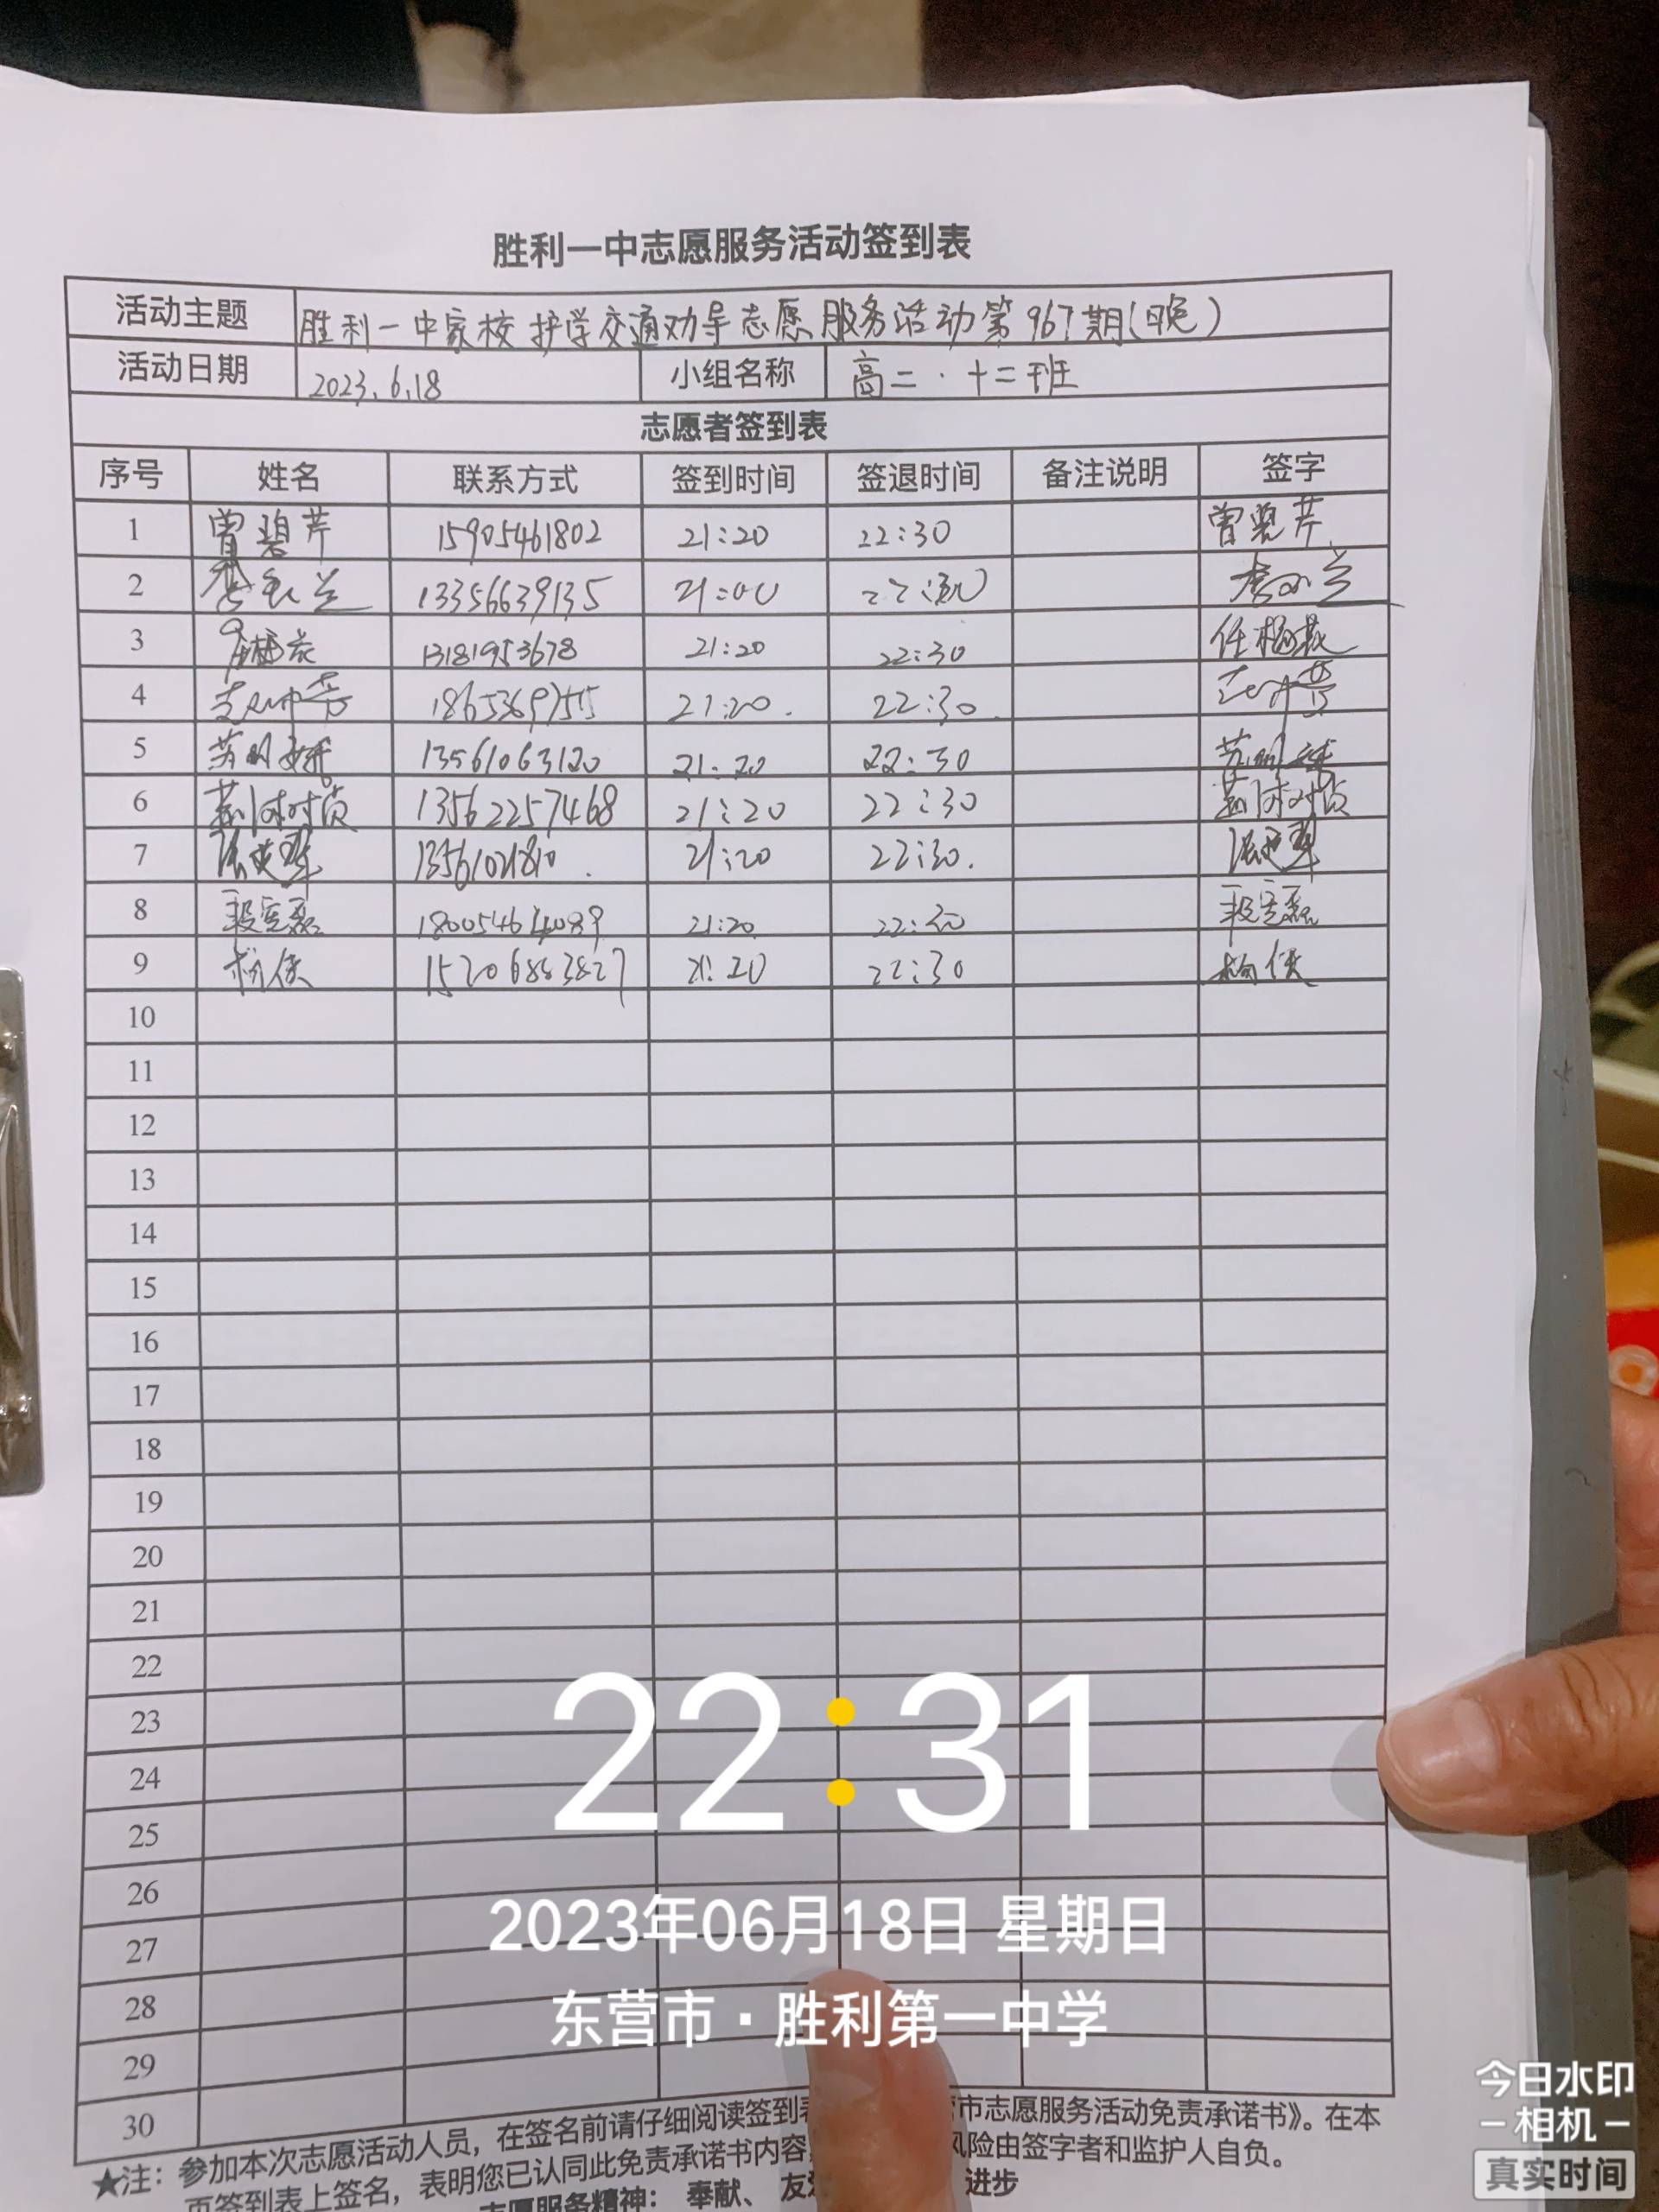 胜利一中志愿服务活动签到表
活动主题 胜利一中家校护学交通劝导志愿服务活动第967期(晚)
活动日期 2023.6.18 小组名称 高二·十二班
志愿者签到表
序号 姓名 联系方式 签到时间 签退时间 备注说明 签字
1 曾碧芹 15905461802 21:20 22:30 曾碧芹
2 13356639135 21:00 22:30
3 13181953678 21:20 22:30 任梅
4 21:20. 22:30.
5 苏明 13561063120 21:20 22:30 苏明
6 13562257468 21:20 22:30
7 21:20 22:30.
8 段宝磊 18005464089 21:20 22:30 段宝磊
9 杨侠 15206863827 21:20 22:30 杨侠
10
11
12
13
14
15
16
17
18
19
20
21
22
23
24
25
26
27
28
29
30
22:31
2023年06月18日 星期日
东营市·胜利第一中学
★注：参加本次志愿活动人员，在签名前请仔细阅读签到 市志愿服务活动免责承诺书》。在本
页签到表上签名，表明您已认同此免责承诺书内容 风险由签字者和监护人自负。
志愿服务精神：奉献、友 进步
今日水印
相机
真实时间